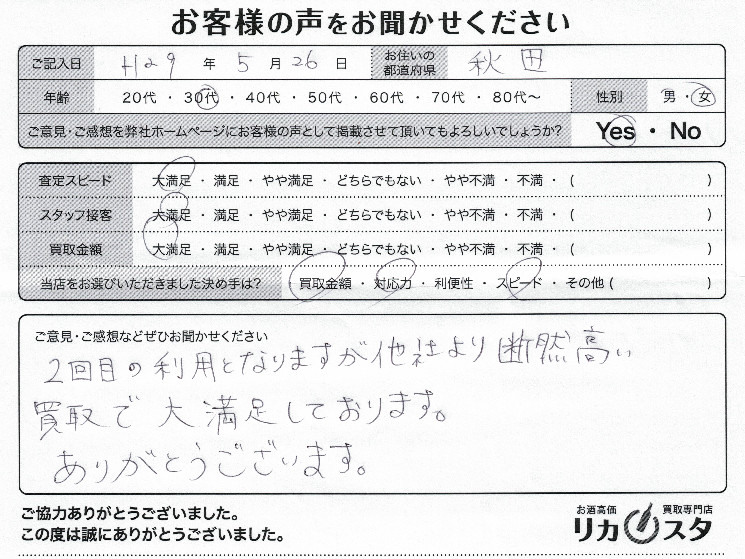 お客様の声をお聞かせください
ご記入日 H29 年 5 月 26 日 お住いの都道府県 秋田
年齢 20代・30代・40代・50代・60代・70代・80代〜 性別 男・女
ご意見・ご感想を弊社ホームページにお客様の声として掲載させて頂いてもよろしいでしょうか? Yes・No
査定スピード 大満足・満足・やや満足・どちらでもない・やや不満・不満・( )
スタッフ接客 大満足・満足・やや満足・どちらでもない・やや不満・不満・( )
買取金額 大満足・満足・やや満足・どちらでもない・やや不満・不満・( )
当店をお選びいただきました決め手は? 買取金額・対応力・利便性・スピード・その他( )
ご意見・ご感想などぜひお聞かせください
2回目の利用となりますが他社より断然高い
買取で大満足しております。
ありがとうございます。
ご協力ありがとうございました。
この度は誠にありがとうございました。
お酒高価 買取専門店
リカスタ